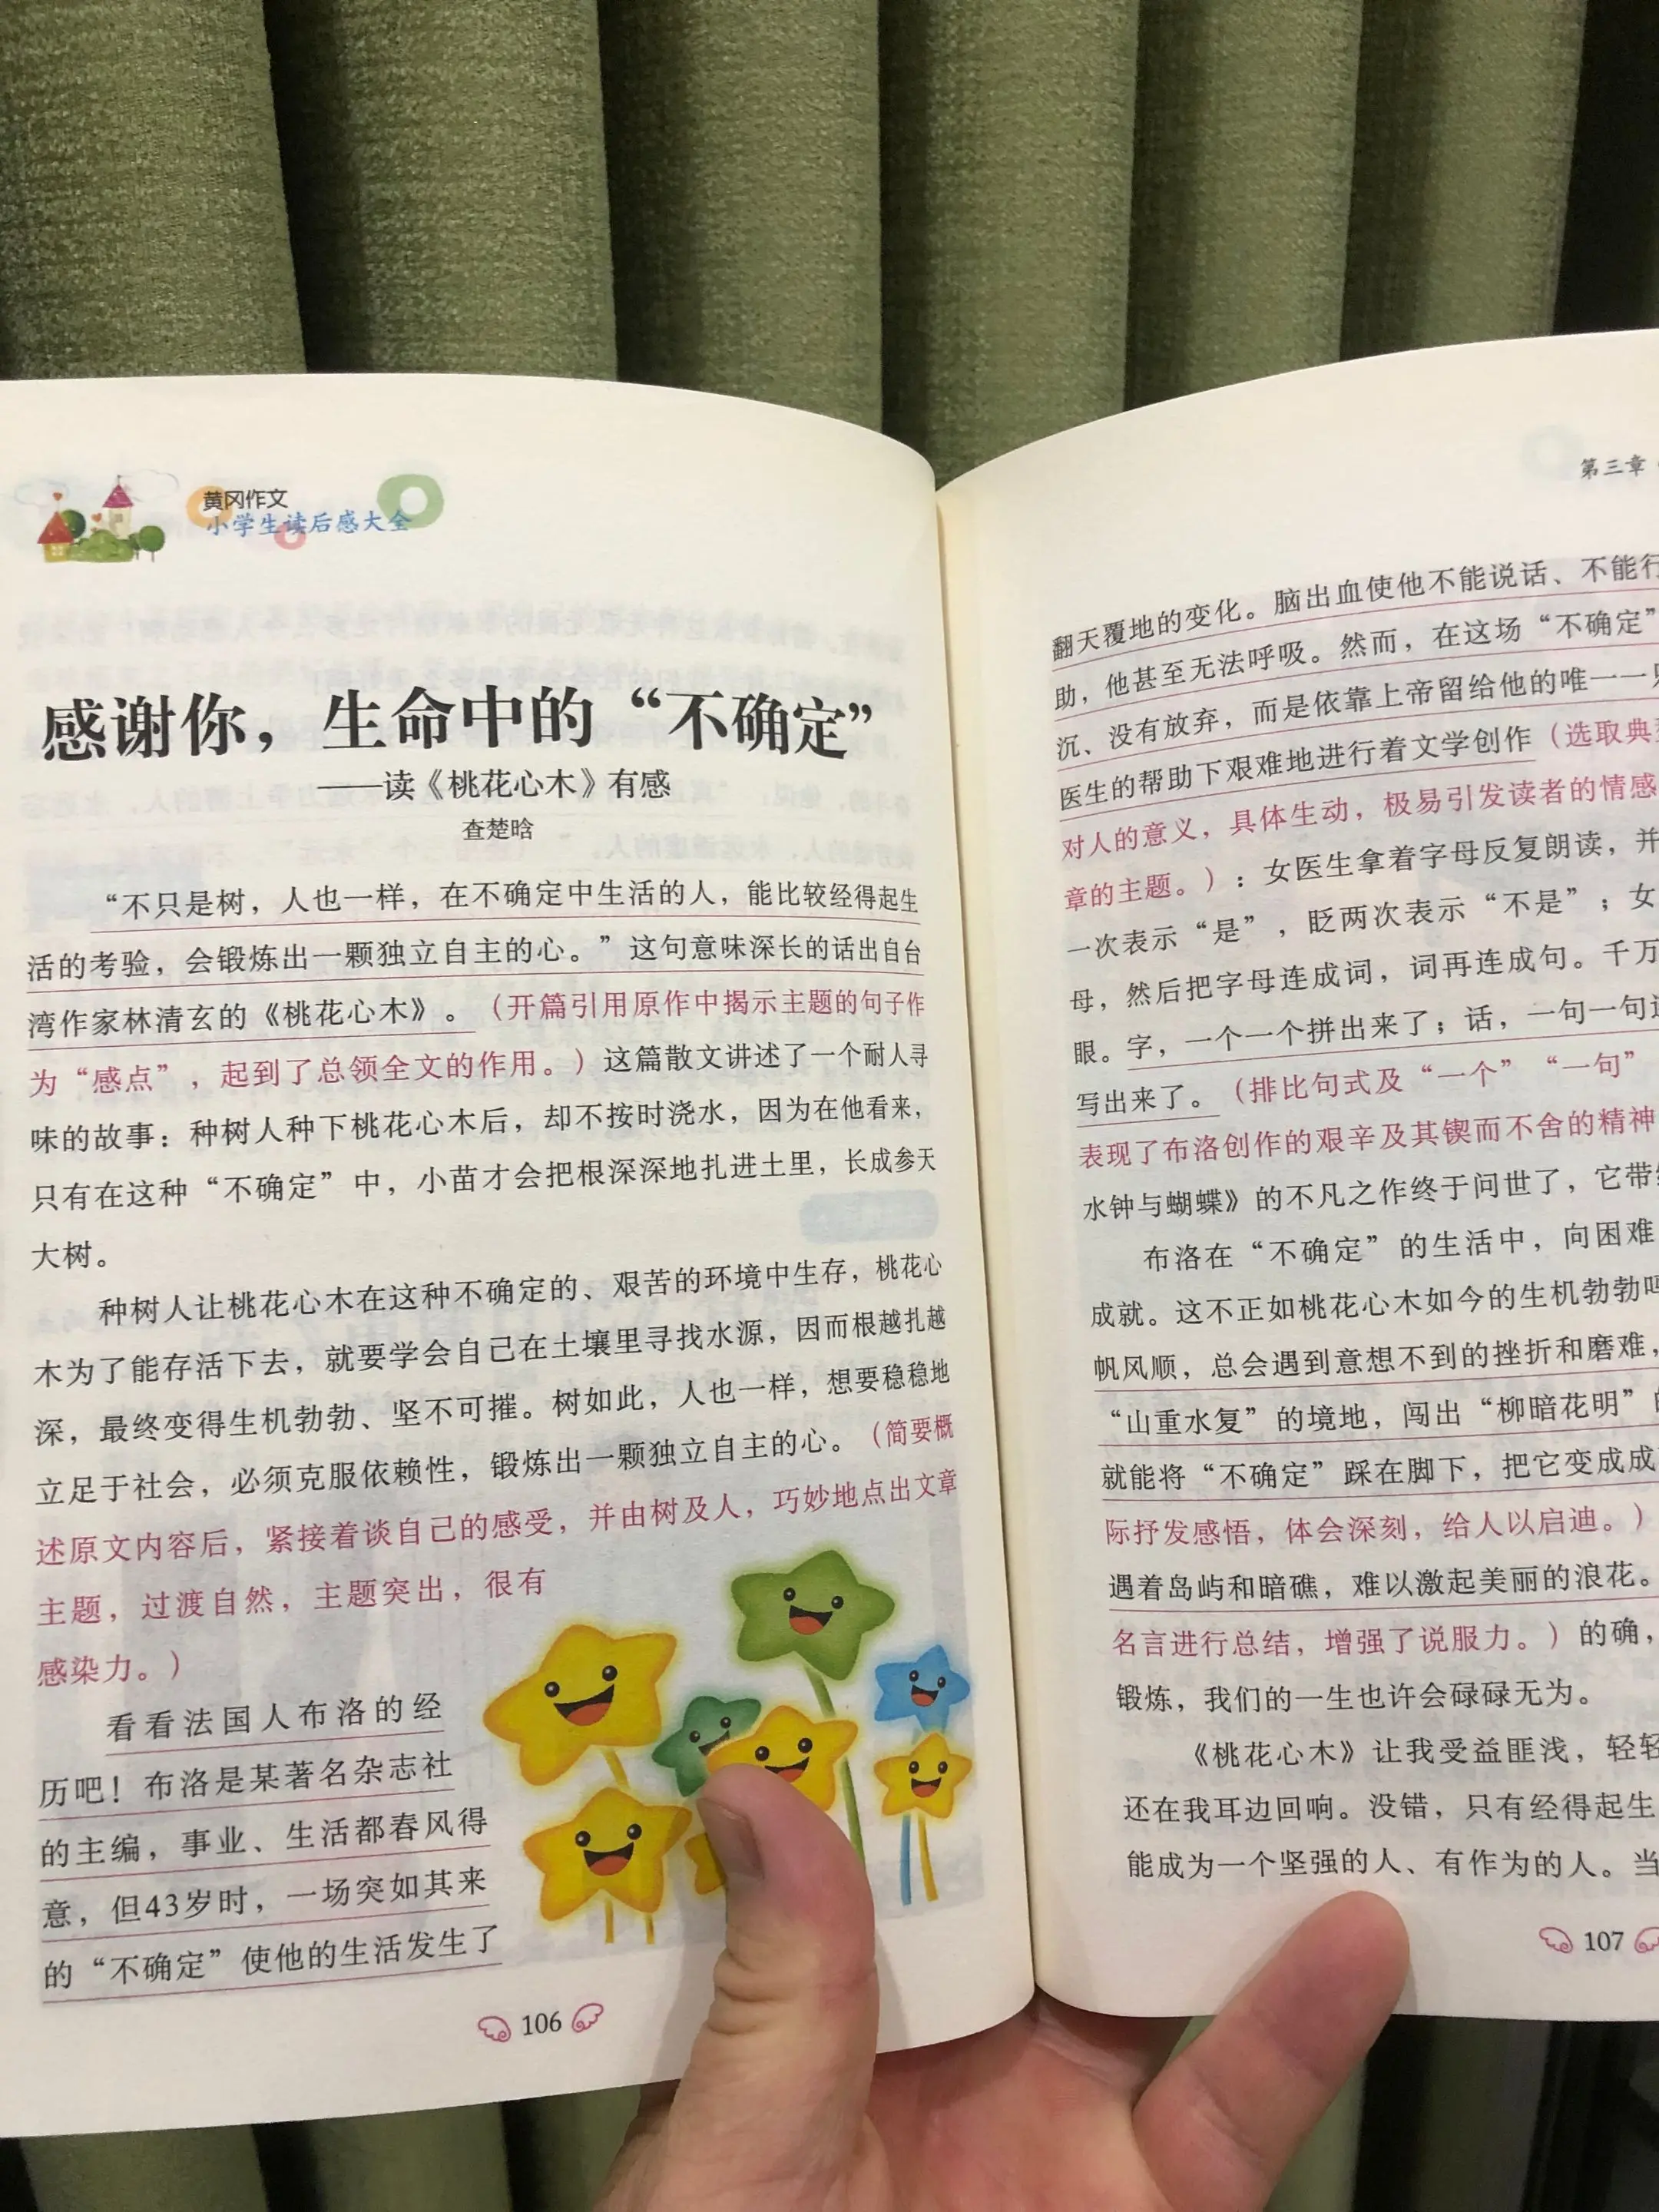 黄冈作文
小学生读后感大全
感谢你，生命中的“不确定”
——读《桃花心木》有感
查楚晗
“不只是树，人也一样，在不确定中生活的人，能比较经得起生
活的考验，会锻炼出一颗独立自主的心。”这句意味深长的话出自台
湾作家林清玄的《桃花心木》。（开篇引用原作中揭示主题的句子作
为“感点”，起到了总领全文的作用。）这篇散文讲述了一个耐人寻
味的故事：种树人种下桃花心木后，却不按时浇水，因为在他看来，
只有在这种“不确定”中，小苗才会把根深深地扎进土里，长成参天
大树。
种树人让桃花心木在这种不确定的、艰苦的环境中生存，桃花心
木为了能存活下去，就要学会自己在土壤里寻找水源，因而根越扎越
深，最终变得生机勃勃、坚不可摧。树如此，人也一样，想要稳稳地
立足于社会，必须克服依赖性，锻炼出一颗独立自主的心。（简要概
述原文内容后，紧接着谈自己的感受，并由树及人，巧妙地点出文章
主题，过渡自然，主题突出，很有
感染力。）
看看法国人布洛的经
历吧！布洛是某著名杂志社
的主编，事业、生活都春风得
意，但43岁时，一场突如其来
的“不确定”使他的生活发生了
106
第三章
翻天覆地的变化。脑出血使他不能说话、不能行
助，他甚至无法呼吸。然而，在这场“不确定”
沉、没有放弃，而是依靠上帝留给他的唯一一只
医生的帮助下艰难地进行着文学创作（选取典型
对人的意义，具体生动，极易引发读者的情感
章的主题。）：女医生拿着字母反复朗读，并
一次表示“是”，眨两次表示“不是”；女
母，然后把字母连成词，词再连成句。千万
眼。字，一个一个拼出来了；话，一句一句
写出来了。（排比句式及“一个”“一句”
表现了布洛创作的艰辛及其锲而不舍的精神
水钟与蝴蝶》的不凡之作终于问世了，它带
布洛在“不确定”的生活中，向困难
成就。这不正如桃花心木如今的生机勃勃吗
帆风顺，总会遇到意想不到的挫折和磨难，
“山重水复”的境地，闯出“柳暗花明”的
就能将“不确定”踩在脚下，把它变成成
际抒发感悟，体会深刻，给人以启迪。）
遇着岛屿和暗礁，难以激起美丽的浪花。
名言进行总结，增强了说服力。）的确，
锻炼，我们的一生也许会碌碌无为。
《桃花心木》让我受益匪浅，轻轻
还在我耳边回响。没错，只有经得起生
能成为一个坚强的人、有作为的人。当
107